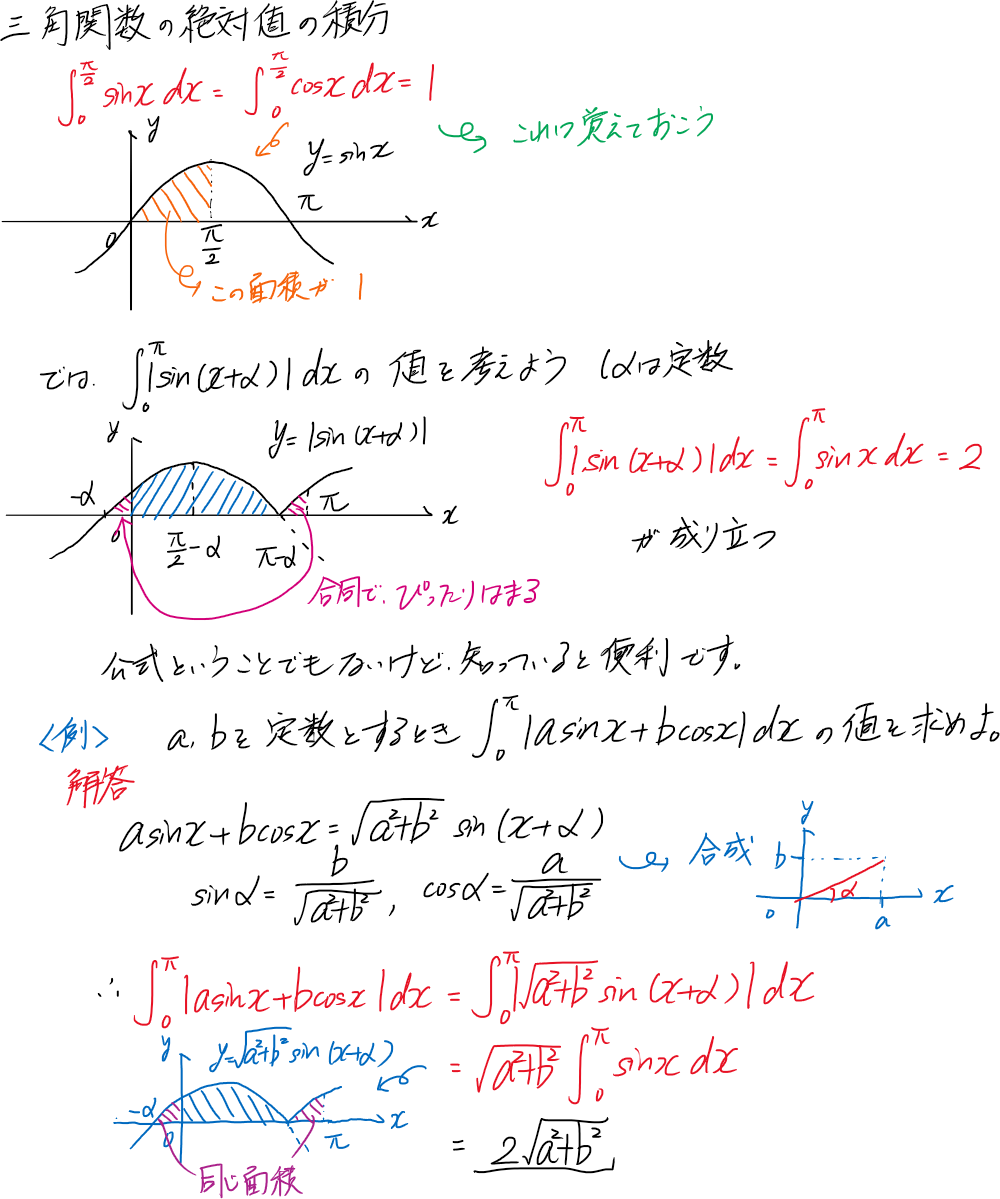 三角関数の絶対値の積分
∫₀^{π/2} sinx dx = ∫₀^{π/2} cosx dx = 1
これは覚えておこう
y
y=sinx
π
x
0
π/2
この面積が 1
では、∫₀^π |sin(x+α)| dx の 値を考えよう (αは定数
y
y=|sin(x+α)|
∫₀^π |sin(x+α)|dx = ∫₀^π sinx dx = 2
-α
π
x
0
が成り立つ
π/2-α
π-α
合同で、ぴったりはまる
公式ということでもないけど、知っていると便利です。
<例> a, bを定数とするとき ∫₀^π |asinx+bcosx|dx の値を求めよ。
解答
asinx+bcosx=√(a²+b²) sin(x+α)
sinα= b/√(a²+b²), cosα= a/√(a²+b²)
合成
y
b
α
x
0
a
∴ ∫₀^π |asinx+bcosx|dx = ∫₀^π |√(a²+b²) sin(x+α)|dx
y
y=√(a²+b²) sin(x+α)
= √(a²+b²) ∫₀^π sinx dx
-α
x
0
π
= 2√(a²+b²)
同じ面積